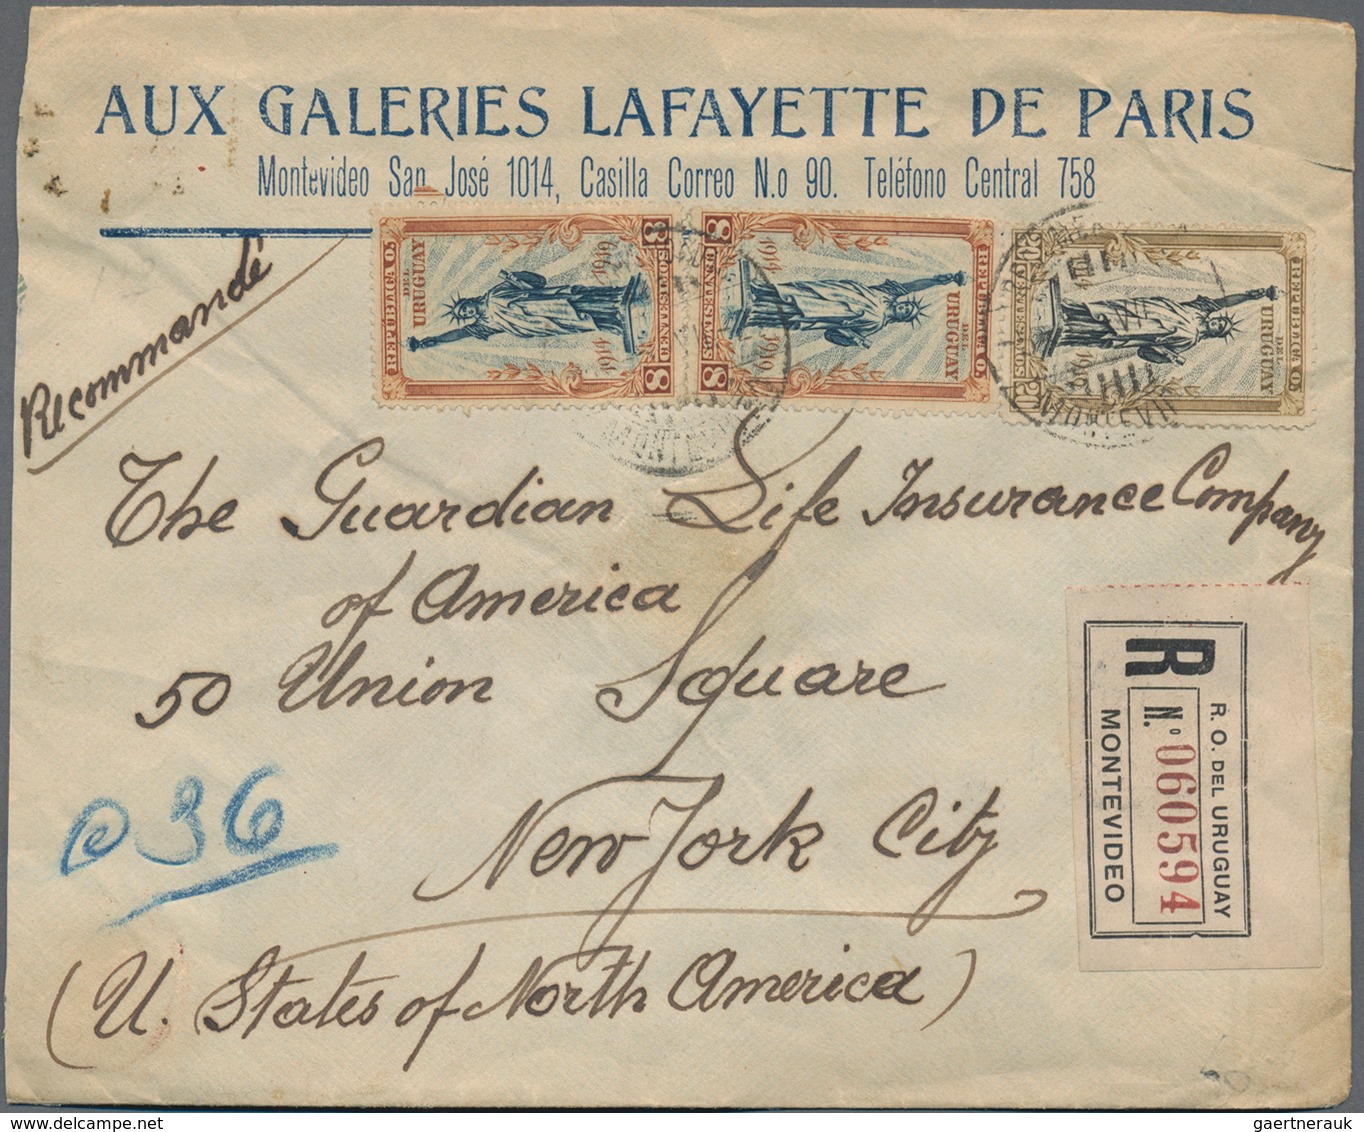 AUX GALERIES LAFAYETTE DE PARIS
Montevideo San José 1014, Casilla Correo N.o 90. Teléfono Central 758
Recommandé
REPUBLICA O.
DEL
URUGUAY
1919
1914
8 CENTESIMOS 8
REPUBLICA O.
DEL
URUGUAY
1914
1919
8 CENTESIMOS 8
REPUBLICA O.
DEL
URUGUAY
20 CENTESIMOS 20
MONTEVID
The Guardian Life Insurance Company
of America
50 Union Square
New York City
(U. States of North America)
36
R
R. O. DEL URUGUAY
N.o 060594
MONTEVIDEO
gaertnerauk